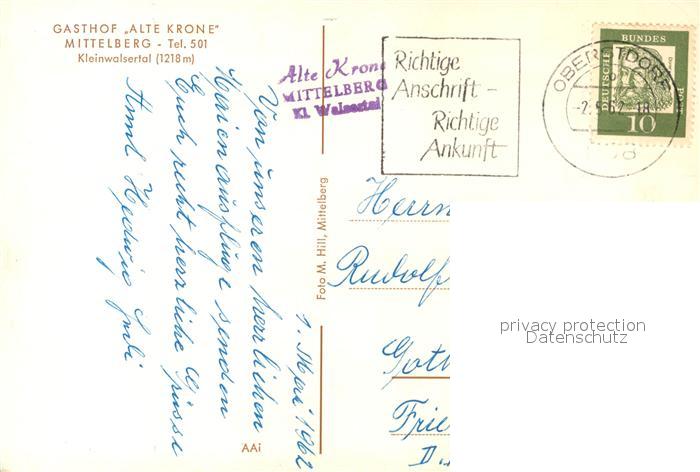 GASTHOF „ALTE KRONE"
MITTELBERG - Tel. 501
Kleinwalsertal (1218 m)
Alte Krone
MITTELBERG
Kl. Walsertal
Richtige
Anschrift -
Richtige
Ankunft
OBERSTDORF
-2.5.62.18
DEUTSCHE
BUNDES
POST
10
1. Mai 1962
Von unseren herrlichen
Maienausflüge senden
Euch recht herzliche Grüsse
Hedwig
Foto M. Hill, Mittelberg
AAi
Herrn
Rudolf
Gott
Frie
II.
privacy protection
Datenschutz